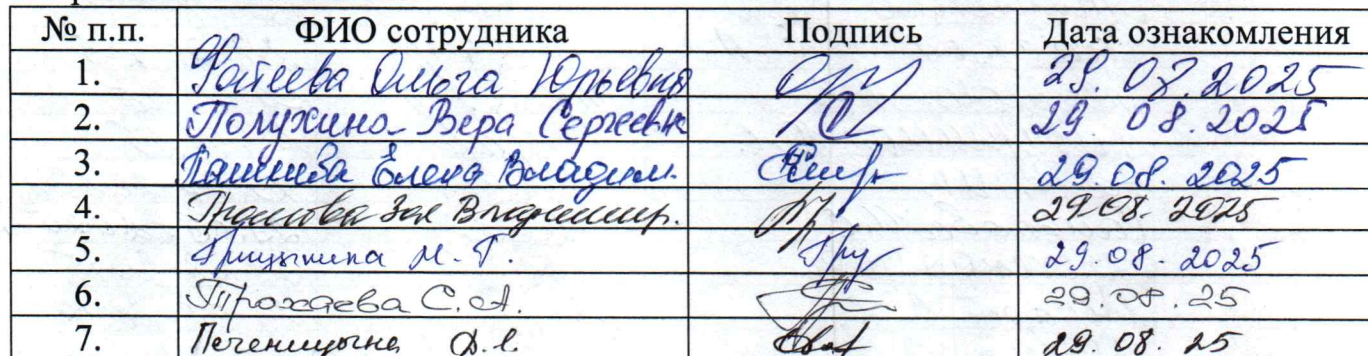 № п.п. ФИО сотрудника Подпись Дата ознакомления
1. Фатеева Ольга Юрьевна 29.08.2025
2. Полухина Вера Сергеевн 29.08.2025
3. Елена Владим. 29.08.2025
4. Зоя Владимир. 29.08.2025
5. Грицынина М.Г. 29.08.2025
6. Трохаева С.А. 29.08.25
7. Печеницына 29.08.25